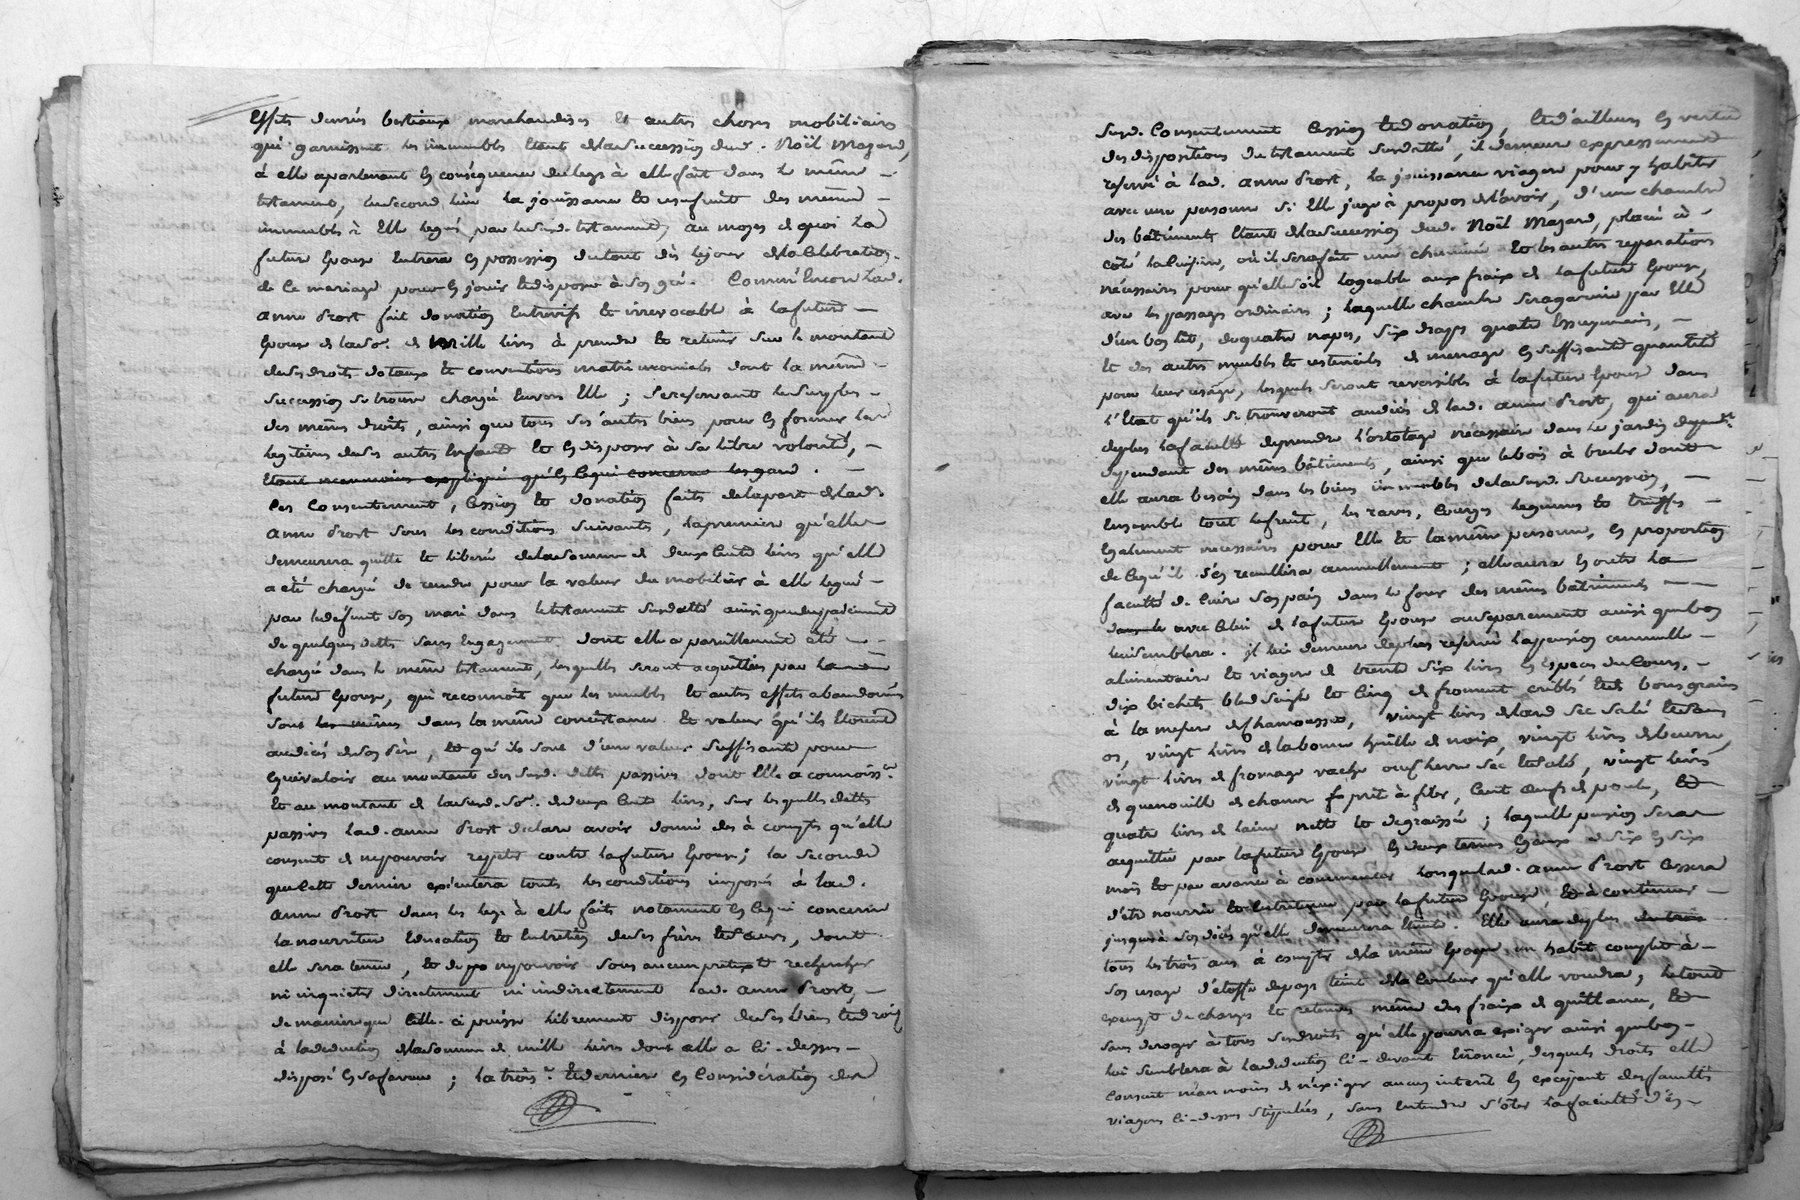 Effets denrés bestiaux marchandises et autres choses mobiliairs
qui garnissent les immeubles Etant de la succession dud. Noël Mazard,
à elle apartenant En conséquence du legs à elle fait dans le même
testament, En second lieu la jouissance et usufruit des mêmes
immeubles à Elle legués par le susd. testament, au moyen de quoi La
future Epouse Entrera En possession du tout dès le jour de la Celebration
de Ce mariage pour En jouir Et disposer à Son gré. Comme Encore Lad.
anne Prost fait donation Entrevifs Et irrevocable à la future
Epouse de la so. de Mille livres à prendre Et retenir sur le montant
de ses droits dotaux Et conventions matrimoniales dont la même
succession se trouve chargée Envers Elle ; se reservant le surplus
des mêmes droits, ainsi que tous ses autres biens pour En former la
legitime de ses autres Enfants Et En disposer à sa libre volonté,
Etant neanmoins expliqué qu'En Cequi concerne les gard.
Ces Consentement, Cession Et donation faits de la part de lad.
anne Prost sous les conditions suivantes, la premiere qu'elle
demeurera quitte Et liberée de la somme de deux Cents livres qu'elle
a été chargé de rendre pour la valeur du mobilier à elle legué
par le défunt son mari dans le testament susdatté ainsi que du payement
de quelques dettes sans Engagement dont elle a pareillement été
chargé dans le même testament, lesquelles seront acquittées par la
future Epouse, qui reconnoit que les meubles Et autres effets abandonnés
sont les mêmes dans la même consistance Et valeur qu'ils Etoient
au décés de son père, Et qu'ils sont d'une valeur suffisante pour
Equivaloir au montant des susd. dettes passives dont Elle a connoiss.ce
Et au montant de la susd. So.e de deux Cents livres, sur lesquelles dettes
passives lad. anne Prost declare avoir donné des à comptes qu'elle
consent de ne pouvoir repeter contre la future Epouse ; la seconde
que Cette derniere exécutera toutes les conditions imposées à lad.
anne Prost dans les legs à elle faits notament En Cequi concerne
la nourriture Education Et Entretien de ses frères Et Sœurs, dont
elle sera tenue, Et de ne pouvoir sous aucun pretexte rechercher
ni inquieter directement ni indirectement lad. anne Prost,
de maniere que Celle-ci puisse librement disposer de ses biens Et droits
à la deduction de la somme de mille livres dont elle a Ci-dessus
disposé En sa faveur ; la trois.e Et derniere En Considération des
susd. Consentement Cession Et donation, Et d'ailleurs En vertu
des dispositions du testament susdatté, il demeure expressement
reservé à lad. anne Prost, la jouissance viagere pour y habiter
avec une personne si Elle juge à propos de l'avoir, d'une chambre
des bâtiments Etant de la succession dud. Noël Mazard, placée à
coté la Cuisine, où il sera fait une cheminée Et les autres reparations
nécessaires pour qu'elle soit logeable aux fraix de la future Epouse,
avec les passages ordinaires ; laquelle chambre sera garnie par Elle
d'un bon lit, de quatre napes, six draps, quatre Essuymains,
Et des autres meubles Et ustenciles de menage En suffisante quantité
pour leur usage, lesquels seront reversibles à la future Epouse dans
l'Etat qu'ils se trouveront au décés de lad. anne Prost, qui aura
de plus la faculté de prendre l'ortolage nécessaire dans le jardin
dependant des mêmes bâtiments, ainsi que le bois à bruler dont
elle aura besoin dans les biens immeubles de la susd. succession,
Ensemble tout le fruit, les raves, Courges legumes Et truffes
Egalement necessaires pour Elle Et la même personne, En proportion
de Cequ'il s'En recuillira annuellement ; elle aura En outre la
faculté de Cuire son pain dans le four des mêmes bâtiments
dans le avec Celui de la future Epouse ou separement ainsi que bon
lui semblera. il lui demeure de plus reservé la pension annuelle
alimentaire Et viagere de trente six livres En Especes du Cours,
dix bichets bled seigle Et Cinq de froment criblés Et de bons grains
à la mesure de Chamousset, vingt livres de lard sec salé Et sans
os, vingt livres de la bonne huille de noix, vingt livres de beurre,
vingt livres de fromage vache ou chevre sec Et salé, vingt livres
de quenouille de chanvre prête à filer, Cent œufs de poule, Et
quatre livres de laine nette Et degraissée ; laquelle pension sera
acquittée par la future Epouse En deux termes Egaux de six En six
mois Et par avance à commencer lorsque lad. anne Prost Cessera
d'être nourrie Et Entretenue par la future Epouse, Et à continuer
jusqu'à son décés qu'elle demeurera Eteinte. Elle aura de plus
tous les trois ans à compte de la même Epouse un habit complet à
son usage d'étoffe de pays teint de la Couleur qu'elle voudra ; le tout
exempt de charges Et retenues même des fraix de quittance, Et
sans deroger à tous ses droits qu'elle pourra exiger ainsi que bon
lui semblera à la deduction Ci-devant Enoncée, desquels droits elle
consent néanmoins de n'exiger aucun interet En exceptant des facultés
viageres Ci-dessus stipulées, sans Entendre s'ôter la faculté d'En